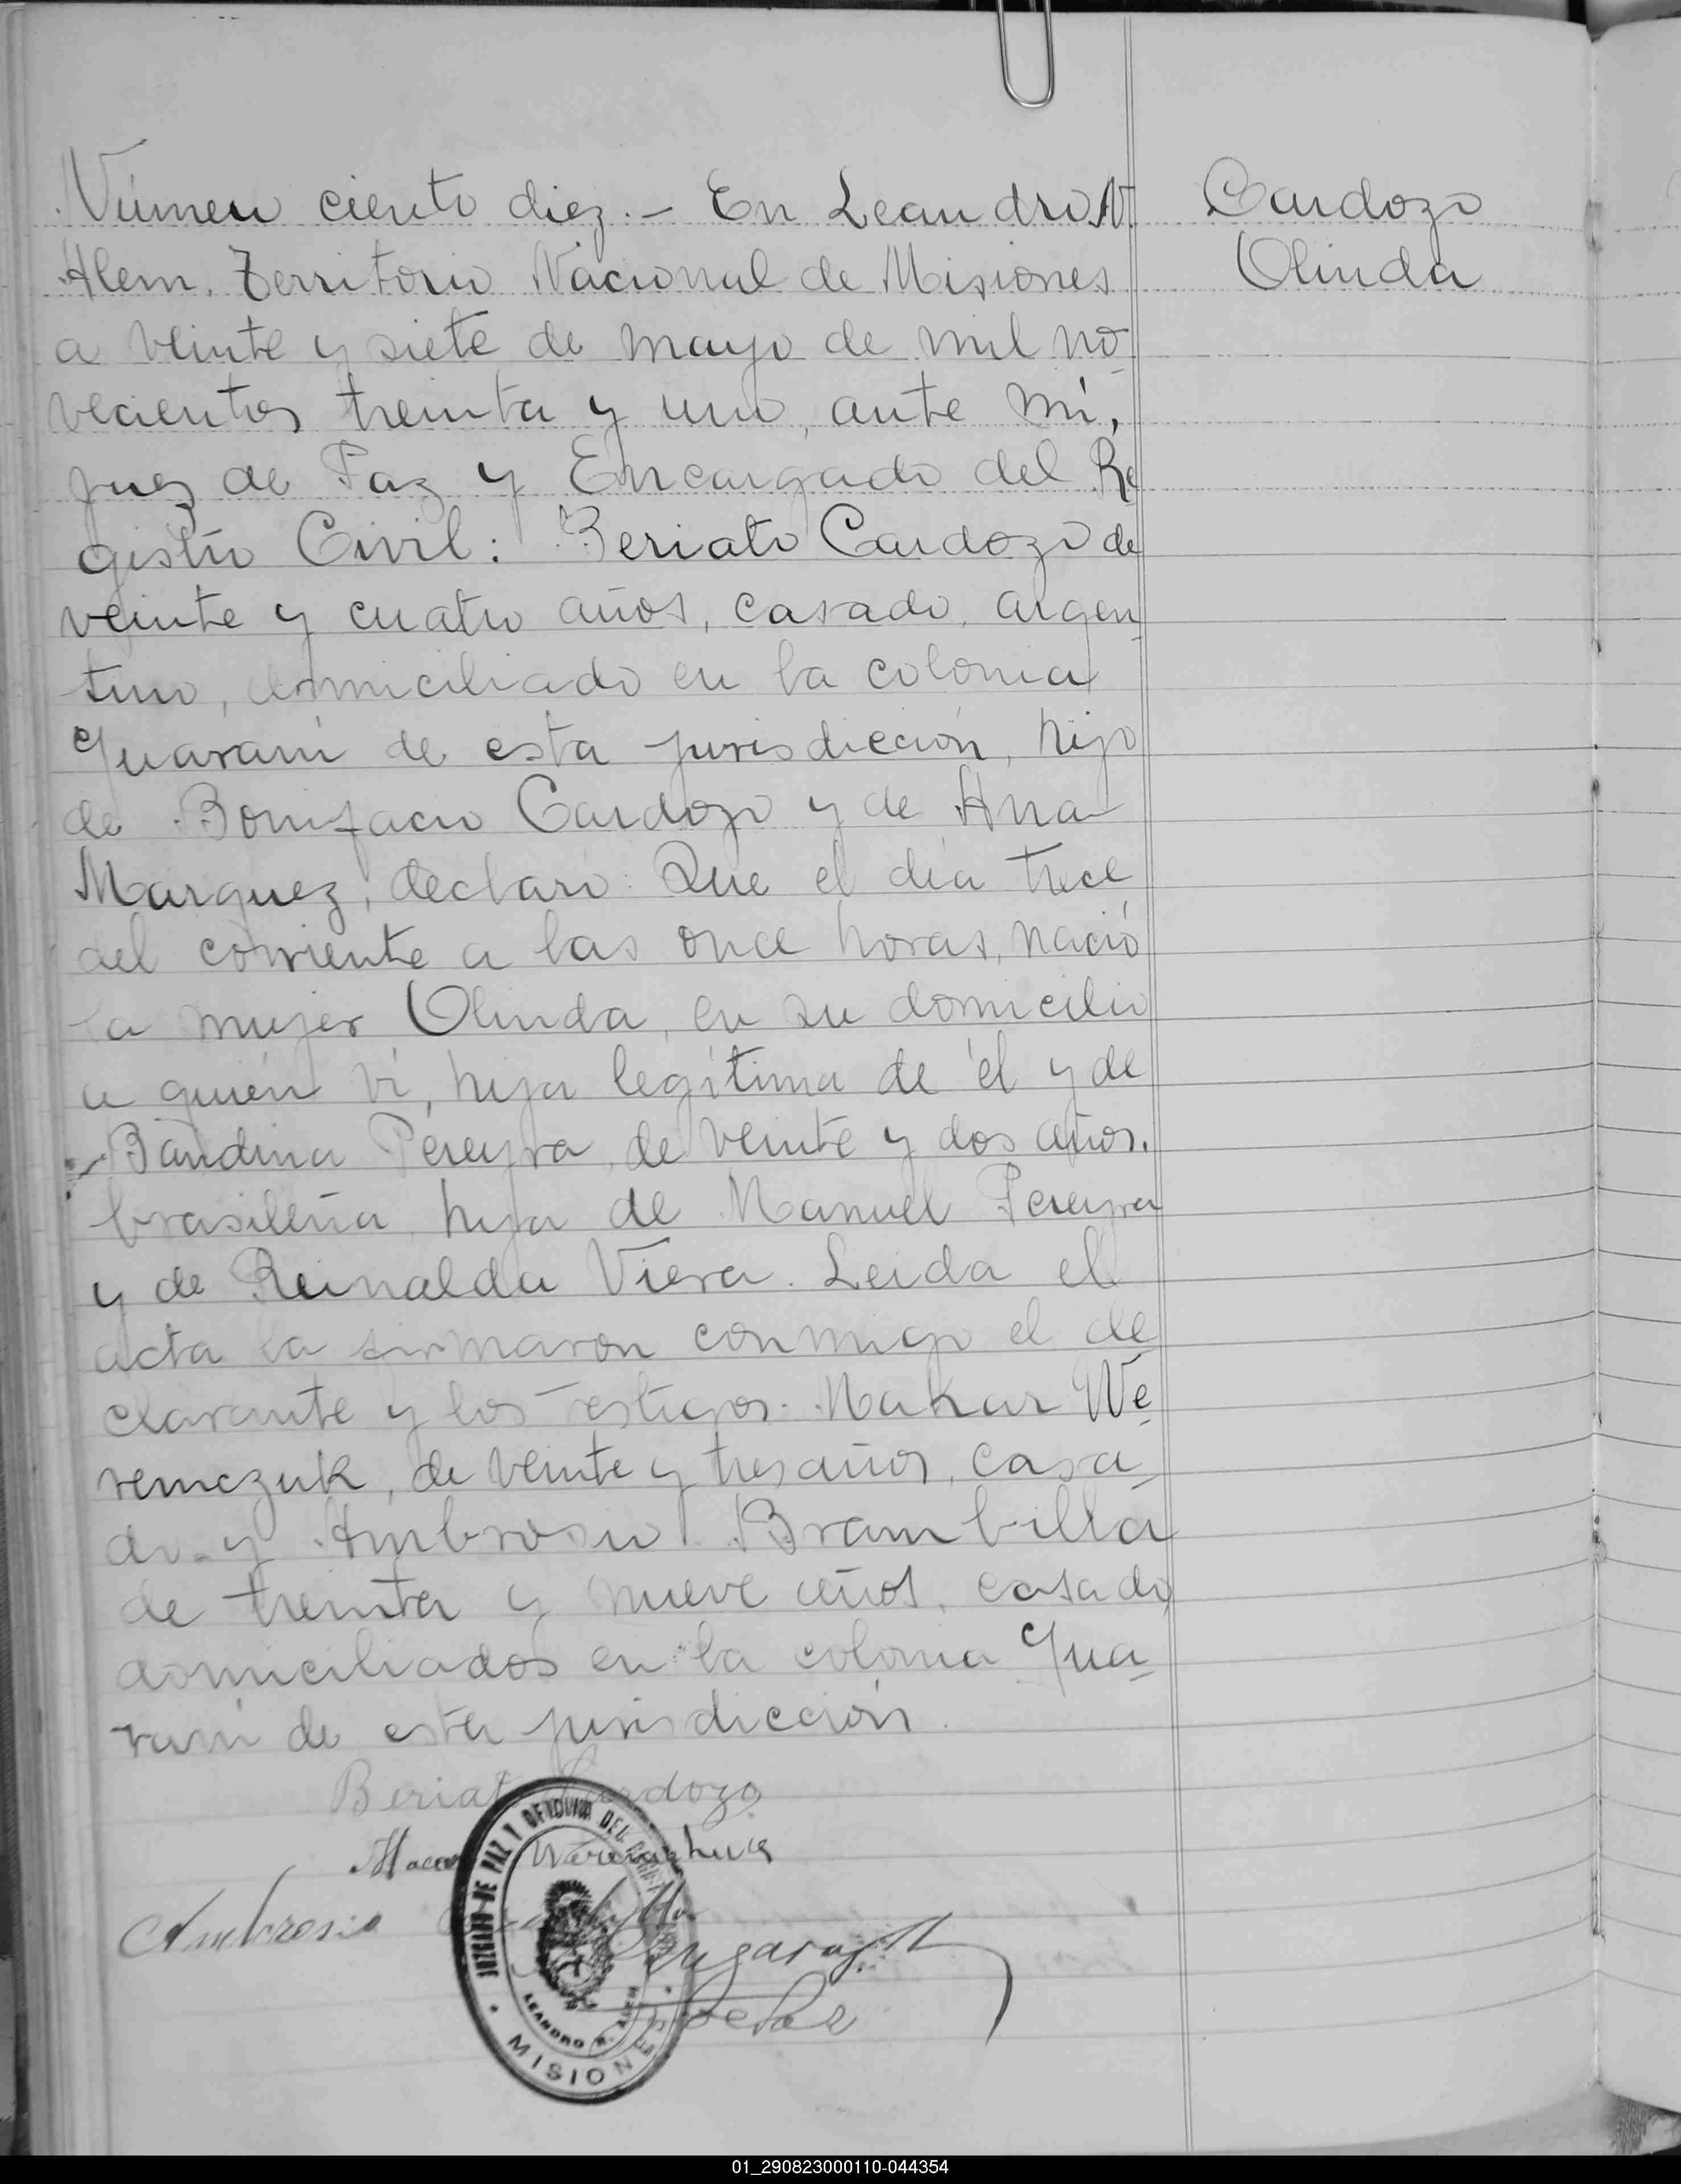 Número ciento diez.– En Leandro N.
Alem. Territorio Nacional de Misiones
a veinte y siete de mayo de mil no-
vecientos treinta y uno, ante mí,
Juez de Paz y Encargado del Re
gistro Civil: Beriato Cardozo de
veinte y cuatro años, casado, argen
tino, domiciliado en la colonia
Guaraní de esta jurisdicción, hijo
de Bonifacio Cardozo y de Ana
Marquez, declaró: Que el día trece
del corriente a las once horas, nació
la mujer Olinda, en su domicilio
a quién ví, hija legítima de él y de
Bandina Pereyra, de veinte y dos años.
brasileña, hija de Manuel Pereyra
y de Reinalda Viera. Leida el
acta la firmaron conmigo el de
clarante y los testigos. Makar We-
remczuk, de veinte y tres años, casa-
do - y Ambrosio Brambilla
de treinta y nueve años, casado,
domiciliados en la colonia Gua-
raní de esta jurisdicción.
Cardozo
Olinda
Beriato Cardozo
Ambrosio
JUZGADO DE PAZ Y OFICINA DEL
LEANDRO N. ALEM
MISIONES
01_290823000110-044354